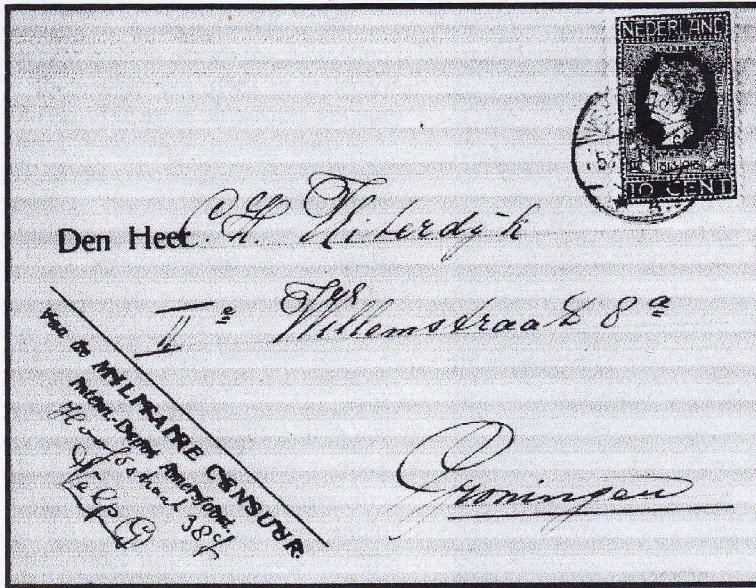 NEDERLAND
10 CENT
Den Heer Ch. Kiberdijk
II e Willemstraat 8 a
Groningen
Via de MILITAIRE CENSUUR.
Intern. Depot Amersfoort.